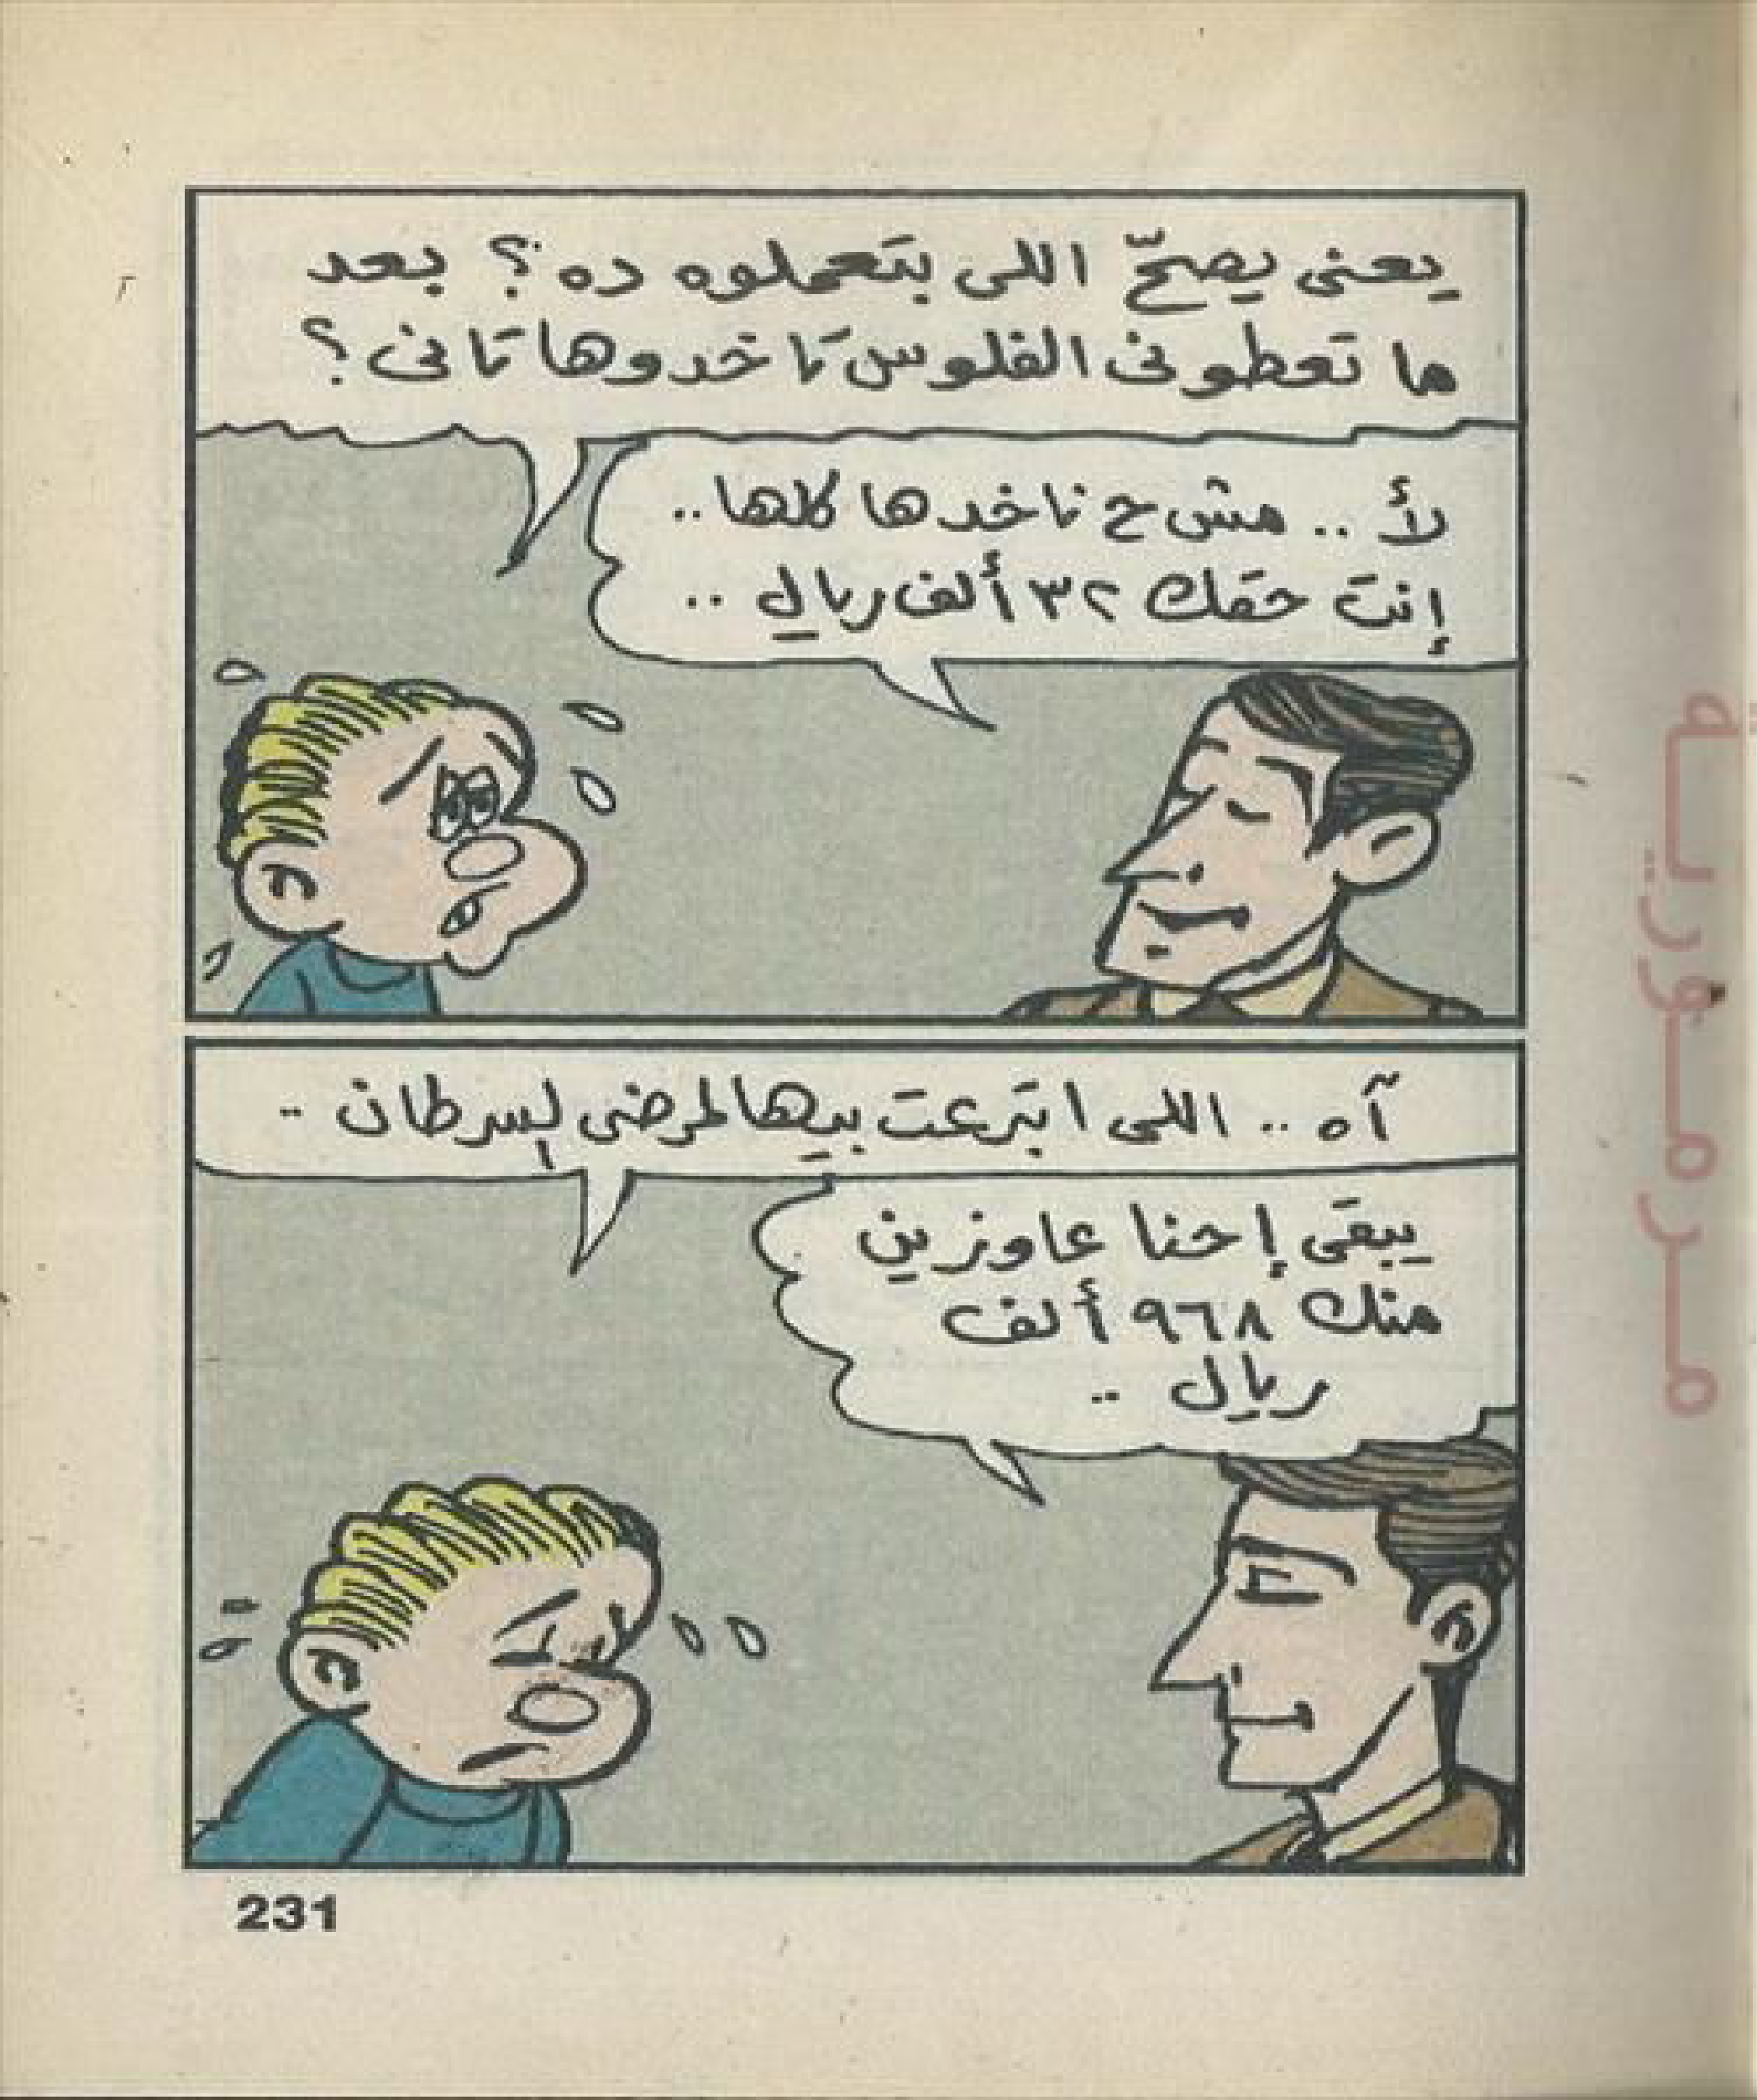 يعنى يصحّ اللى بتعملوه ده؟ بعد
ما تعطونى الفلوس تاخدوها تانى؟
لأ .. مش ح ناخدها كلها ..
إنت حقك ٣٢ ألف ريال ..
آه .. اللى اتبرعت بيها لمرضى السرطان -
يبقى إحنا عاوزين
منك ٩٦٨ ألف
ريال ..
231
مرموريه